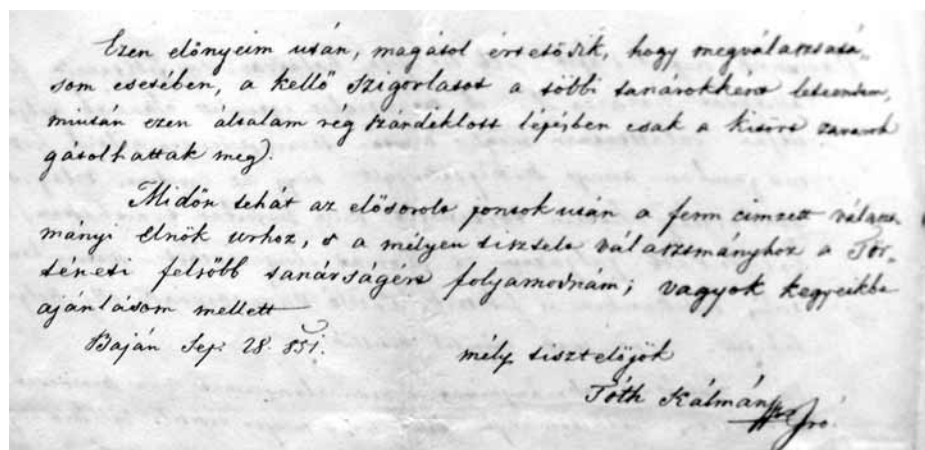 Ezen előnyeim után, magától értetődik, hogy megválasztatá-
som esetében, a kellő szigorlatot a többi tanárokként leteendem,
miután ezen általam rég szándéklott lépésben csak a kitört zavarok
gátolhattak meg).
Midőn tehát az elősorolt pontok után a fenn címzett választ-
mányi elnök urhoz, s a mélyen tisztelt választmányhoz a Tör-
téneti felsőbb tanárságért folyamodnám; vagyok kegyeikbe
ajánlásom mellett
Baján Sep. 28. 851.
mély tisztelőjök
Tóth Kálmán
iró.